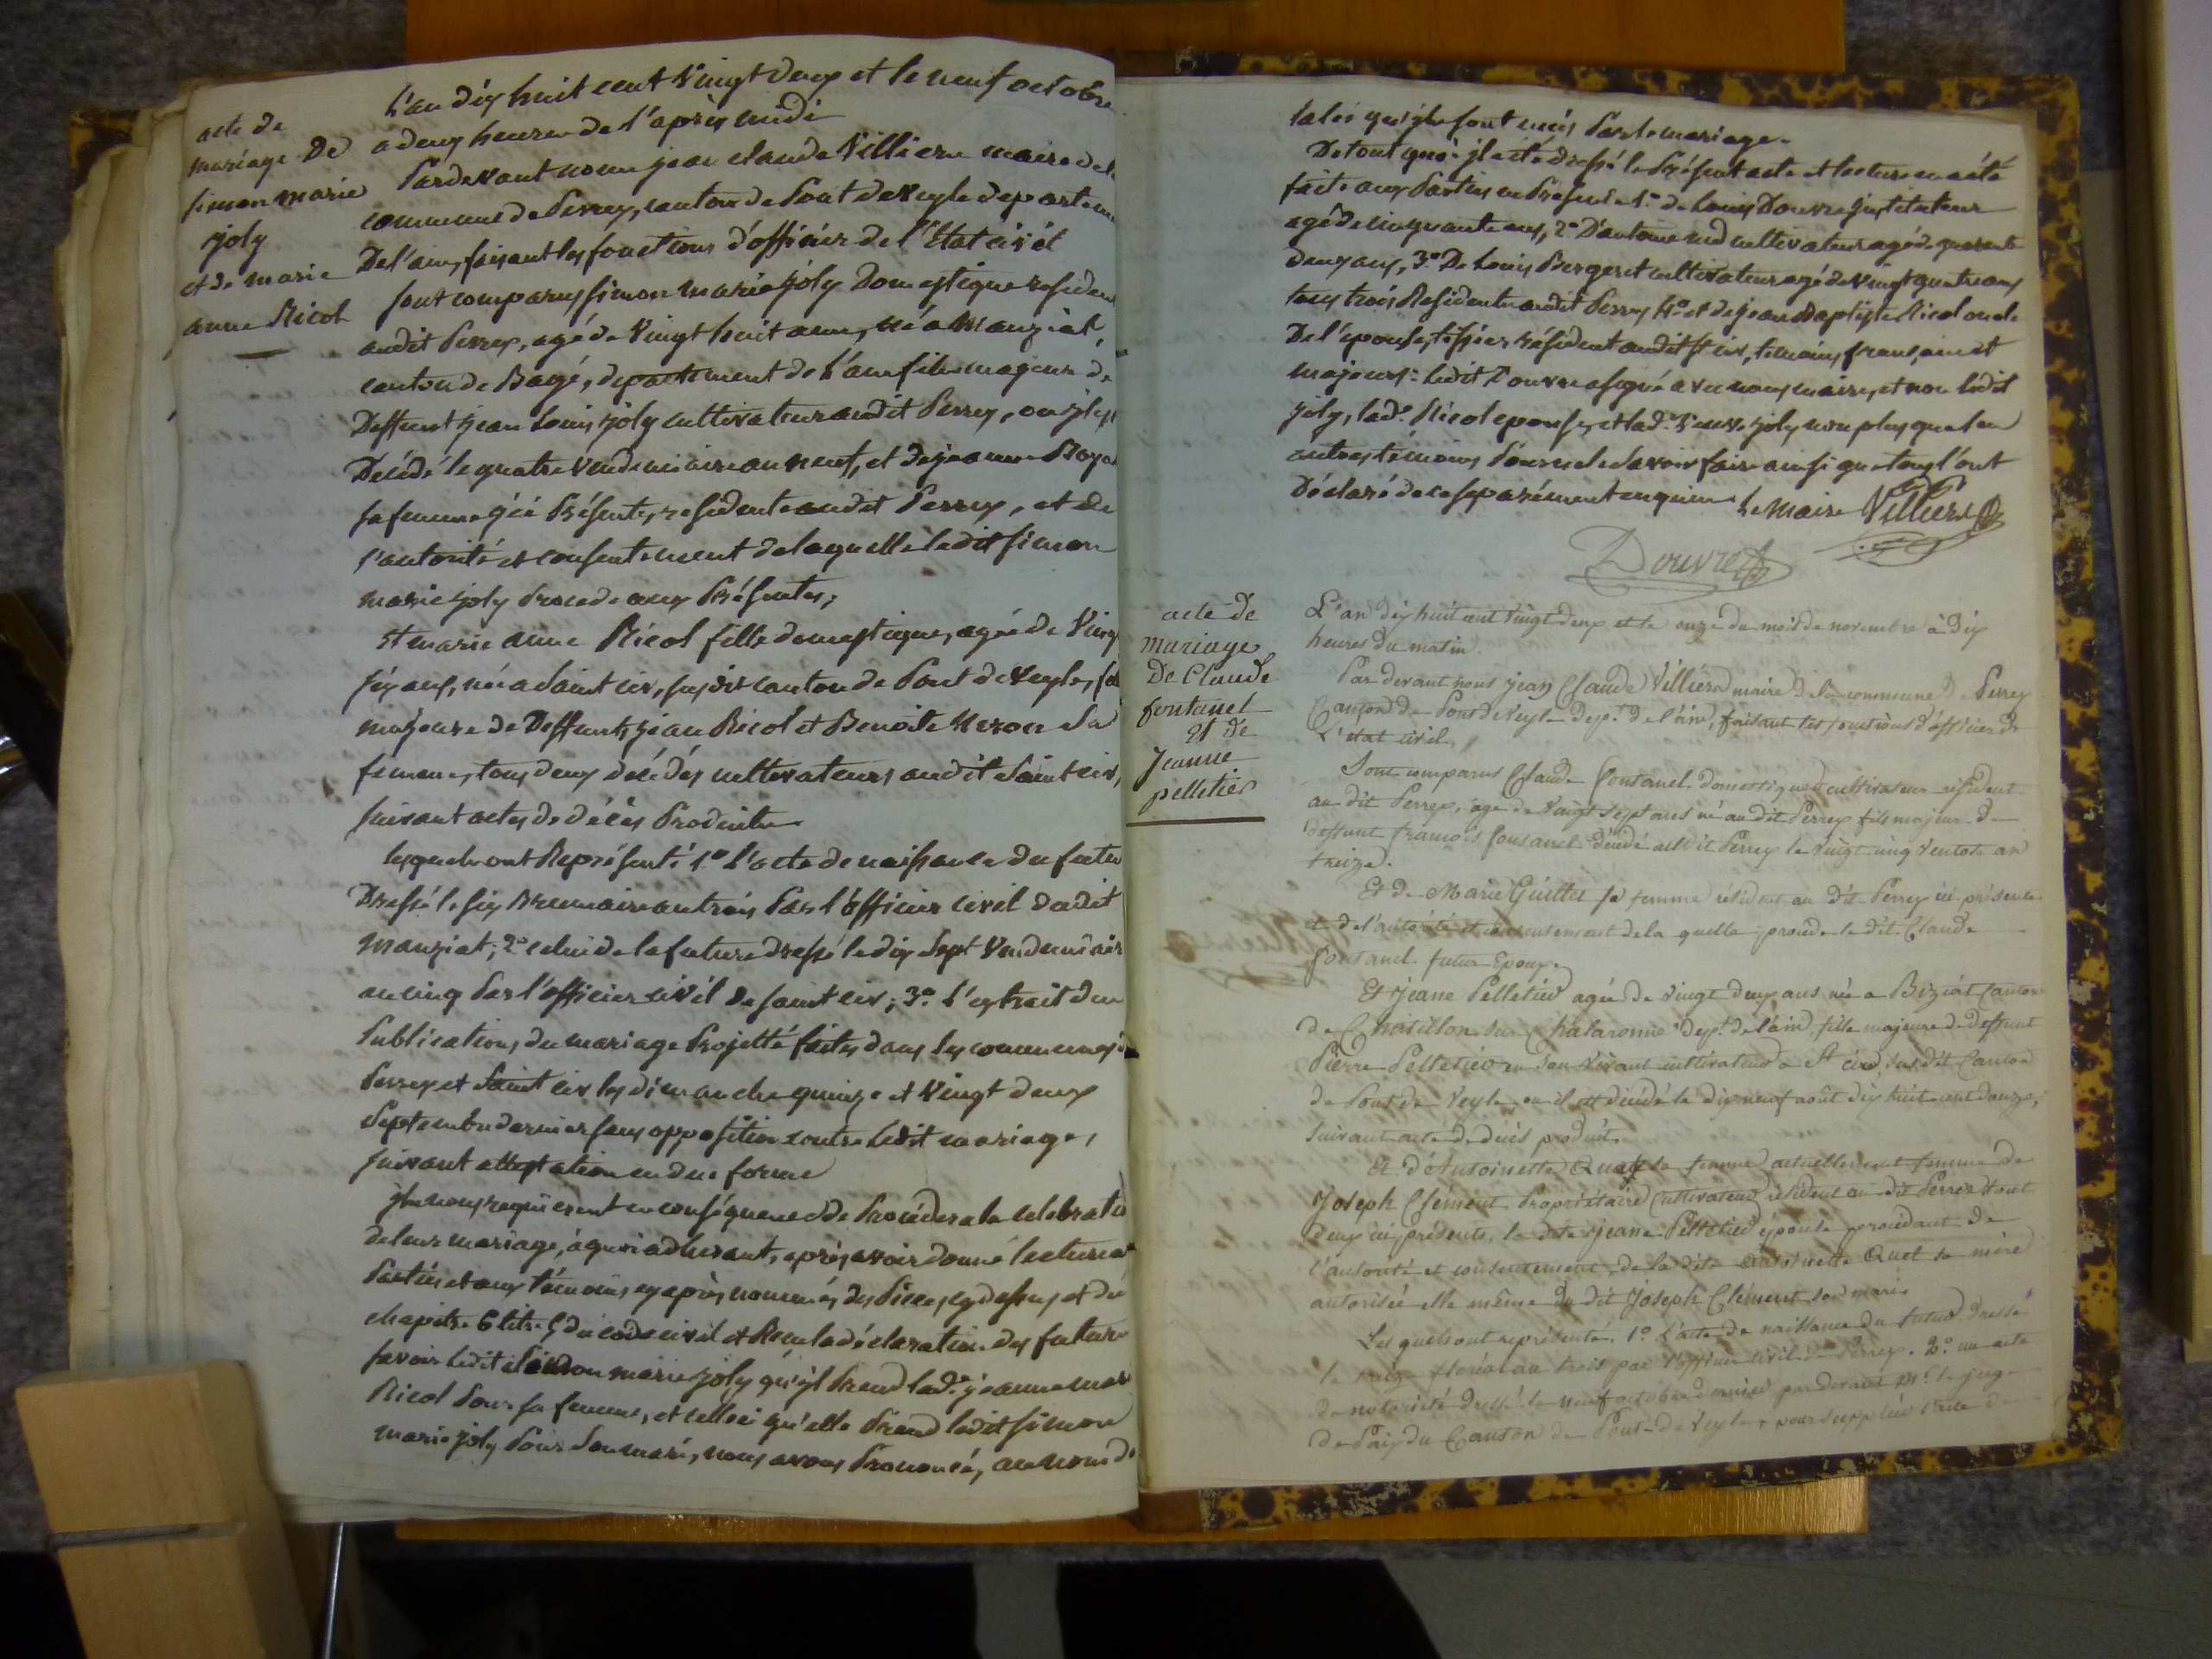 acte de
mariage De
simon marie
joly
et de marie
anne Nicol
L'an dix huit cent vingt deux et le neuf octobre
a deux heures de l'après midi
Pardevant nous jean claude Villiers maire de la
commune de Perrex, canton de Pont de Veyle departeme
De l'ain, faisant les fonctions d'officier de l'Etat civil
sont comparus simon marie joly Domestique residen
audit Perrex, agé de vingt huit ans, né a Manziat,
canton de Bagé, departement de l'ain fils majeur de
Deffunt jean Louis joly cultivateur audit Perrex, ou il est
Décédé le quatre vendemiaire an neuf, et de jeanne
sa femme ici Présente, residente audit Perrex, et de
l'autorité et consentement de laquelle ledit simon
marie joly Procede aux Présentes;
et marie anne Nicol fille domestique, agée de Ving
six ans, née a Saint cir, susdit canton de Pont de Veyle, fil
majeure de Deffunts jean Nicol et Benoite sa
femme, tous deux décédés cultivateurs audit Saint cir,
suivant actes de décès Produits
lesquels ont Représenté 1º l'acte de naissance du futur
Dressé le six Brumaire an trois Par l'officier civil dudit
Manziat; 2º celui de la future dressé le dix sept Vendemiair
an cinq Par l'officier civil de saint cir; 3º l'extrait des
Publications du mariage Projetté faites dans les communes de
Perrex et Saint cir les dimanche quinze et Vingt deux
Septembre dernier sans opposition contre ledit mariage,
suivant attestation en due forme
ils nous requierent en conséquence de Procéder a la celebratio
de leur mariage, à quoi adherant, après avoir donné lecture aux
Parties et aux témoins cy après nommés des Pieces cy dessus et du
chapitre 6 titre 5 du code civil et Recu la déclaration des futurs
savoir ledit simon marie joly qu'il Prend lade jeanne mar
Nicol Pour sa femme, et celle ci qu'elle Prend ledit simon
marie joly Pour Son mari, nous avons Prononcé, au nom de
la loi qu'ils sont unis Par le mariage.
De tout quoi il a été dressé le Présent acte et lecture en a été
faite aux Parties en Présence 1º de Louis Douvre Instituteur
agé de cinquante ans, 2º D'antoine cultivateur agé de quarante
deux ans, 3º De Louis Bergeret cultivateur agé de vingt quatre ans
tous trois Residents audit Perrex 4º et de jean Baptiste Nicol oncle
De l'épouse, tissier résident audit St cir, temoins francais et
majeurs: ledit Douvre a signé avec nous maire, et non ledit
joly, lade Nicol epouse, et lade veuve joly non plus que les
autres témoins Pour ne le savoir faire ainsi que tous l'ont
Déclaré de ce separément enquis. le maire Villiers
Douvre
acte de
mariage
De Claude
fontanel
et de
Jeanne
pelletier
L'an dix huit cent vingt deux et le onze du mois de novembre à Dix
heures du matin.
Par devant nous jean Claude Villiers maire de la commune de Perrex
Canton de Pont de Veyle dept. de l'ain, faisant les fonctions d'officier de
L'état civil.
Sont comparus Claude fontanel domestique cultivateur résident
au dit Perrex, age de vingt sept ans né au dit Perrex fils majeur de
deffunt francois fontanel décédé au dit Perrex le vingt cinq ventose an
treize.
Et de Marie Guillet sa femme résident au dit Perrex ici présente
et de l'autorité et consentement de la quelle procede le dit Claude
fontanel futur Epoux.
Et jeane Pelletier agée de vingt deux ans née a Biziat canton
de Chatillon sur Chalaronne dept. de l'ain, fille majeure de deffunt
Pierre Pelletier en son vivant cultivateur a St cire, sus dit Canton
de Pont de Veyle, ou il est décédé le dix neuf août dix huit cent douze,
suivant acte de décès produit.
Et d'Antoinette Quet sa femme actuellement femme de
Joseph Clément Propriétaire Cultivateur résident au dit Perrex tout
deux ici présents, la dite jeane Pelletier épouse procédant de
l'autorité et consentement de la dite antoinette Quet sa mère
autorisée elle même du dit Joseph Clément son mari.
Les quels ont représenté, 1º L'acte de naissance du futur, dressé
le treize floréal an trois par l'officier civil de Perrex. 2º un acte
de notoriété dressé le neuf octobre dernier pardevant Mr. le juge
de Paix du Canton de Pont-de-Veyle pour suppléer l'acte de